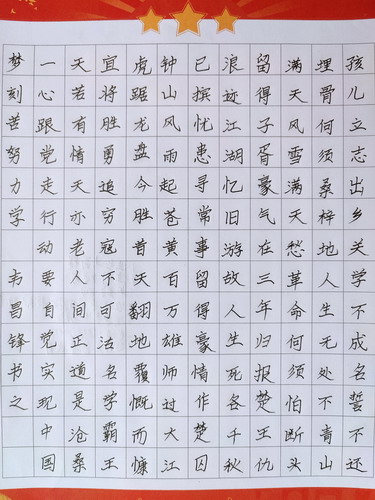 孩儿立志出乡关学不成名誓不还
埋骨何须桑梓地人生无处不青山
满天风雪满天愁革命何须怕断头
留得子胥豪气在三年归报楚王仇
浪迹江湖忆旧游故人生死各千秋
已摈忧患寻常事留得豪情作楚囚
钟山风雨起苍黄百万雄师过大江
虎踞龙盘今胜昔天翻地覆慨而慷
宜将胜勇追穷寇不可沽名学霸王
天若有情天亦老人间正道是沧桑
一心跟党走行动要自觉实现中国
梦刻苦努力学 韦昌锋书之